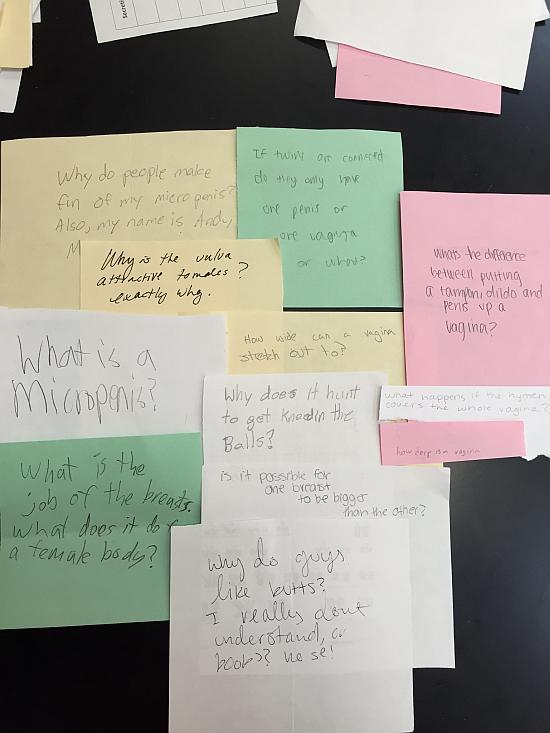 Secret
Why do people make
fun of my micropenis?
Also, my name is Andy,
M
If twins are connected
do they only have
one penis or
one vagina
or what?
Why is the vulva
attractive to males?
exactly why.
whats the difference
between putting
a tampon, dildo and
penis up a
vagina?
How wide can a vagina
stretch out to?
What is a
Micropenis?
Why does it hurt
to get kneed in the
Balls?
what happens if the hymen
covers the whole vagina?
how deep is a vagina
What is the
job of the breasts.
What does it do for
a female body?
is it possible for
one breast
to be bigger
than the other?
Why do guys
like butts?
I really dont
understand, or
boobs?